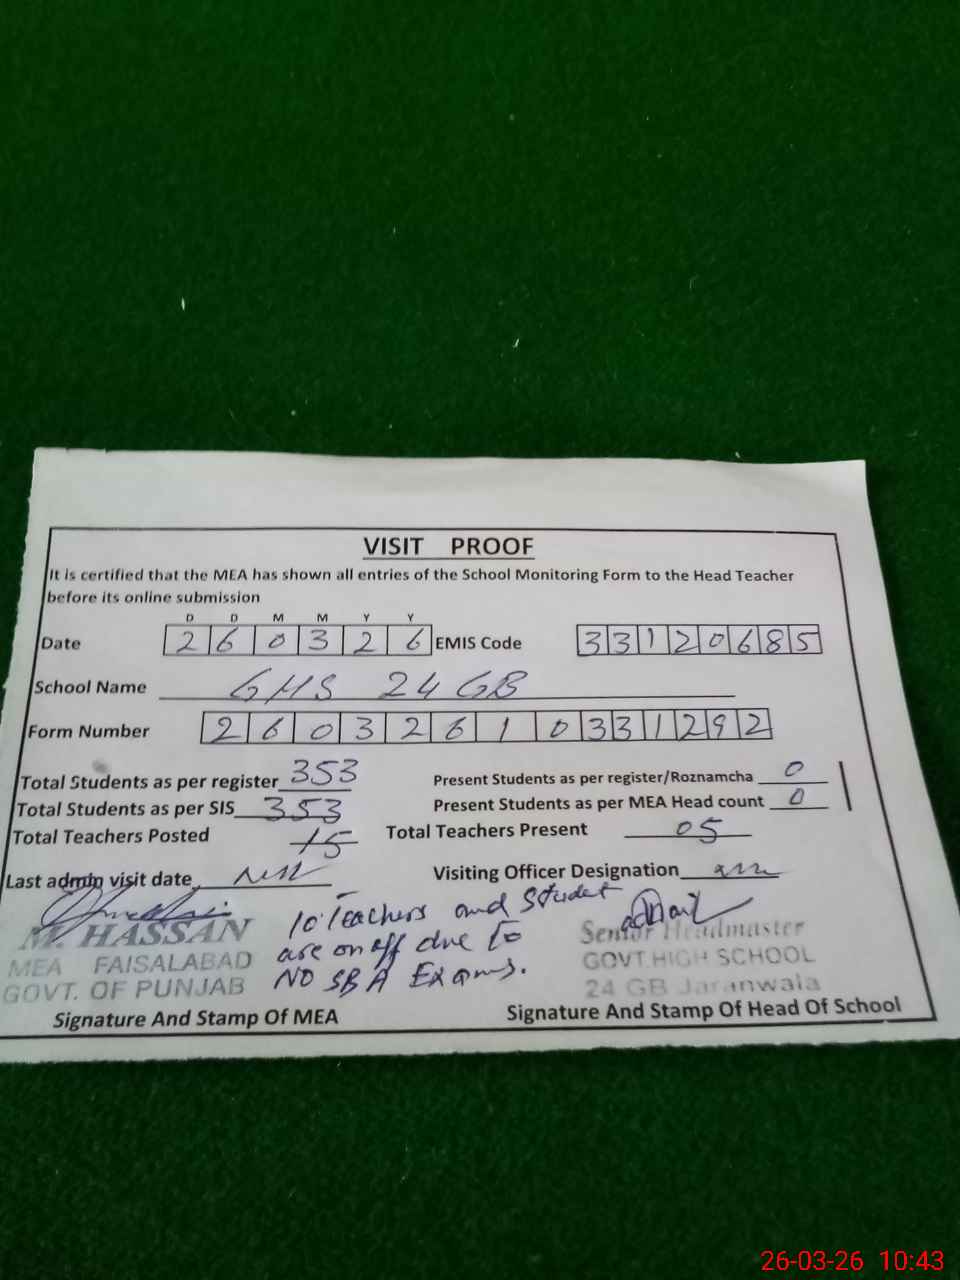 VISIT PROOF
It is certified that the MEA has shown all entries of the School Monitoring Form to the Head Teacher
before its online submission
D D M M Y Y
Date 2 6 0 3 2 6 EMIS Code 3 3 1 2 0 6 8 5
School Name GHS 24 GB
Form Number 2 6 0 3 2 6 1 0 3 3 1 2 9 2
Total Students as per register 353 Present Students as per register/Roznamcha 0
Total Students as per SIS 353 Present Students as per MEA Head count 0
Total Teachers Posted 15 Total Teachers Present 05
Last admin visit date Visiting Officer Designation
10 Teachers and Student
are on off due to
NO SBA Exams.
M. HASSAN
MEA FAISALABAD
GOVT. OF PUNJAB
Signature And Stamp Of MEA
Senior Headmaster
GOVT. HIGH SCHOOL
24 GB Jaranwala
Signature And Stamp Of Head Of School
26-03-26 10:43